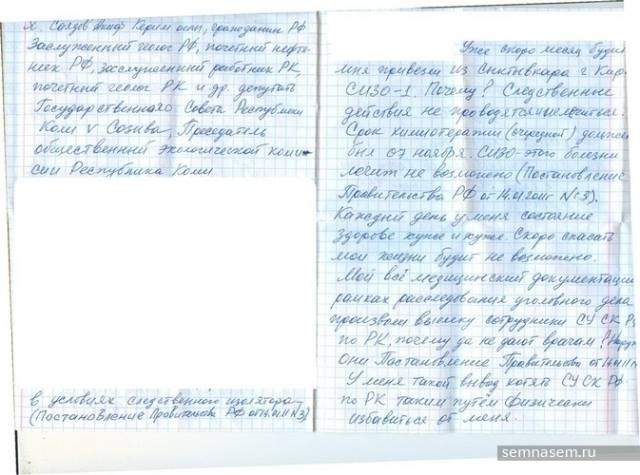 Я. Саядов Акиф Керим оглы, гражданин РФ
Заслуженный геолог РФ, почетный нефтя-
ник РФ, заслуженный работник РК,
почетный геолог РК и др. депутат
Государственного Совета Республики
Коми V Созыва, Председатель
общественный экологической комис-
сии Республика Коми
в условиях следственного изолятора
(Постановление Правительства РФ от 14.01.11 №3)
Уже скоро месяц будит
меня привезли из Сыктывкара г. Кир
СИЗО-1. Почему? Следственные
действия не проводятся
Срок химиотерапии (очередной) должен
был 07 ноября. СИЗО этого болезни
лечит не возможено (Постановление
Правительства РФ от 14.01.2011г №3).
Каждый день у меня состояние
здорове хуже и хуже. Скоро спасать
мои жизни будит не возможено.
Мой всё медицинский документации
рамках расследования уголовного дела
произвели выемку сотрудники СУ СК Р
по РК, почему да не дают врачам?
Они Постановление Правительства от 14.01.11
У меня такой вывод хотят СУ СК РФ
по РК таким путём физически
избавиться от меня.
semnasem.ru